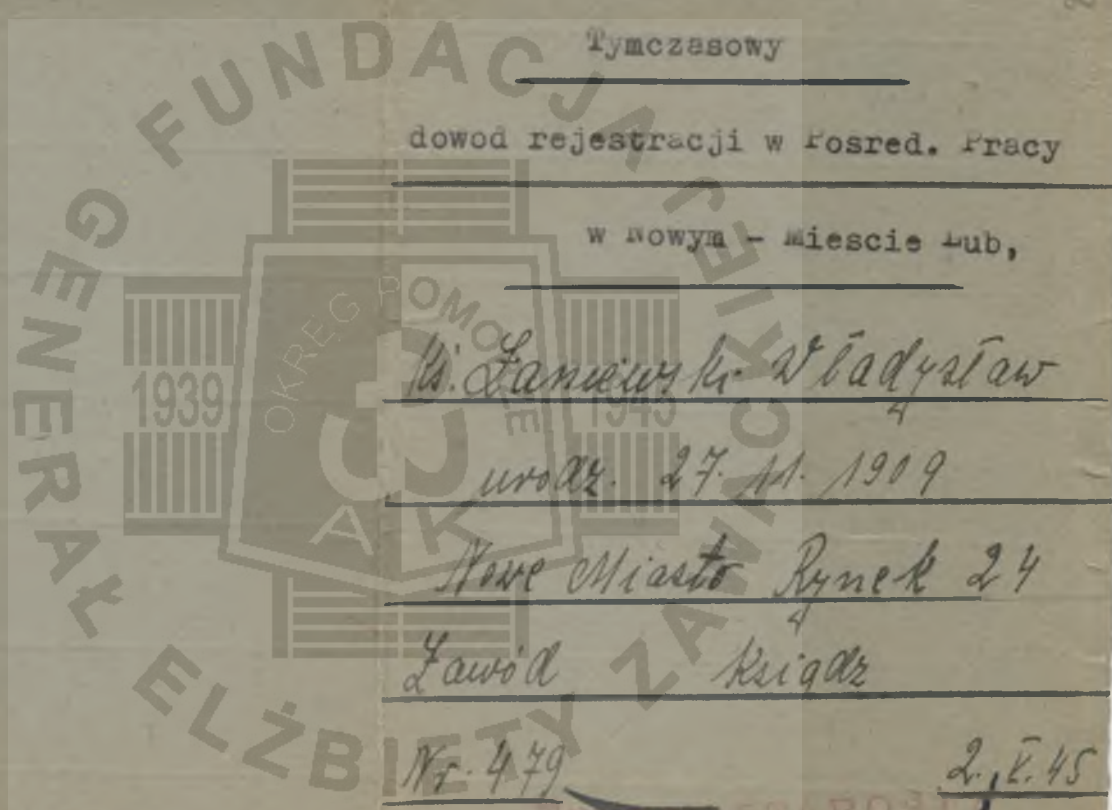 Tymczasowy
dowod rejestracji w Posred. Pracy
w Nowym - Miescie Lub,
ks. Zaniewski Władysław
urodz. 27. 11. 1909
Nowe Miasto Rynek 24
Zawód ksiądz
Nr. 479 2. V. 45
FUNDACJA GENERAŁ ELŻBIETY ZAWACKIEJ
OKRĘG POMORZE
1939 1945
AK